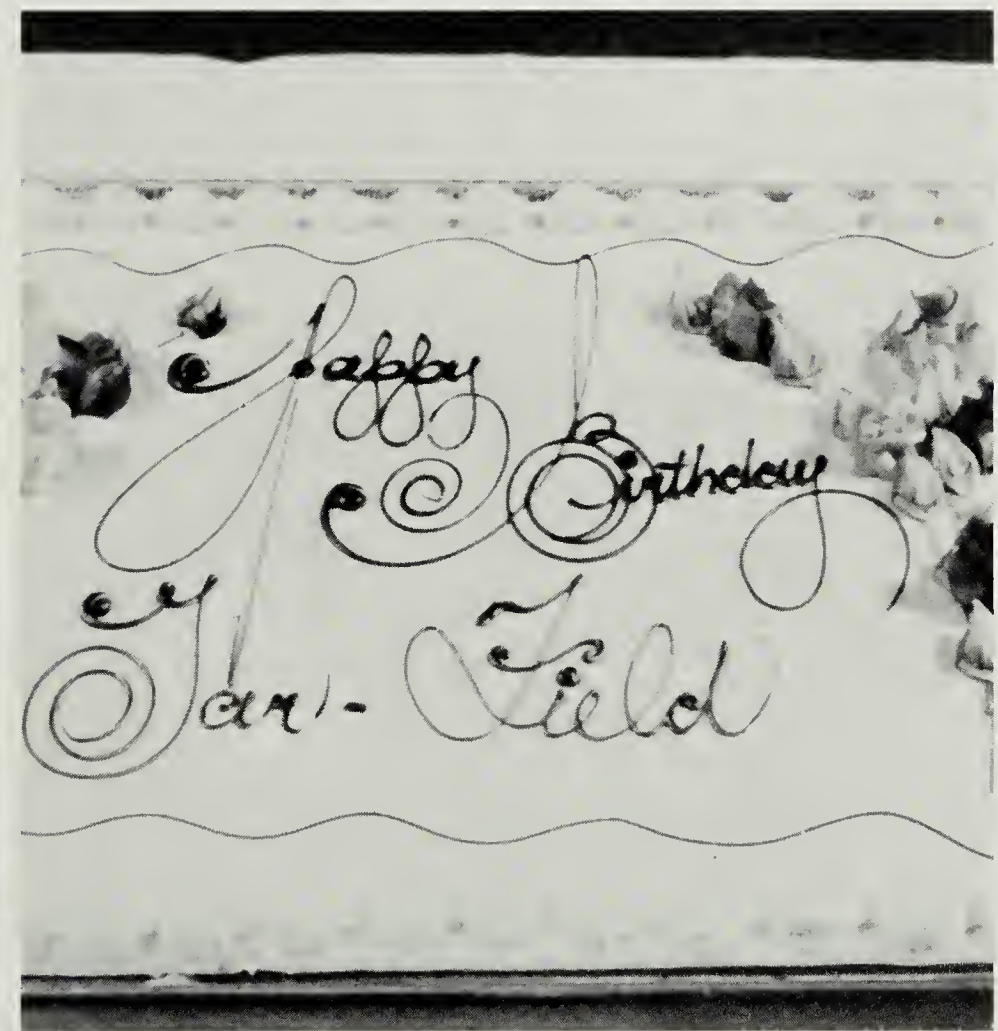 Happy
Birthday
Yari- Field